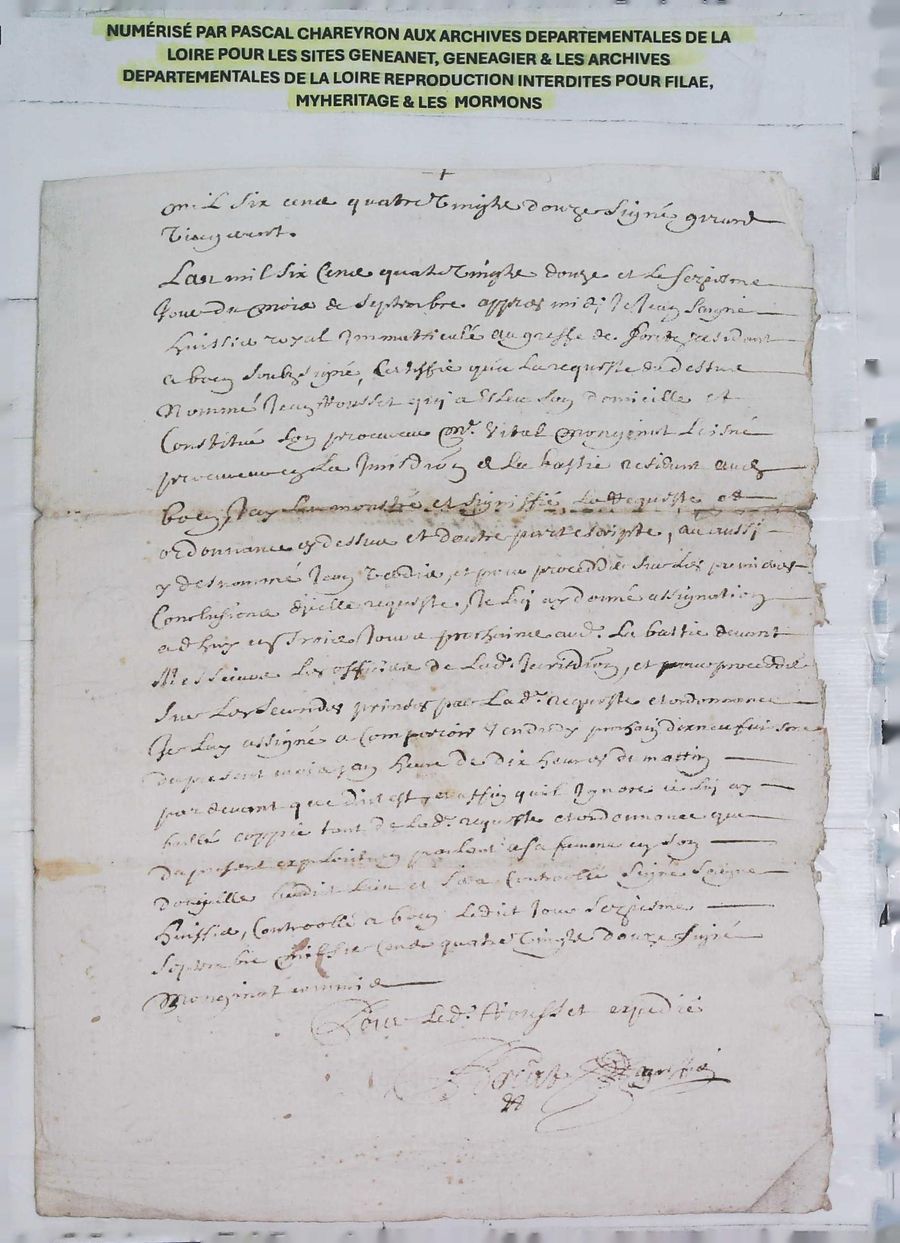 NUMÉRISÉ PAR PASCAL CHAREYRON AUX ARCHIVES DEPARTEMENTALES DE LA
LOIRE POUR LES SITES GENEANET, GENEAGIER & LES ARCHIVES
DEPARTEMENTALES DE LA LOIRE REPRODUCTION INTERDITES POUR FILAE,
MYHERITAGE & LES MORMONS
mil six cens quatre vingts douze signé
L'an mil six cens quatre vingts douze et le seziesme
Jour du mois de septembre appres midi Je Jean
huissier royal Immatriculé au greffe de resident
a boen soubsigné, Certiffie qu'a la requeste du dessus
Nommé Jean Housset qui a esleu son domicille et
Constitué son procureur Me. Vital
procureur en la Jurisdion de la bastie residant aud
boen, J'ay montré et signiffié la Requeste et
ordonnance cy dessus et d'autre part escripte, au aussi
y des nommé Jean et pour procedder sur les premieres
Conclusions d'icelle requeste, Je luy ay donné assignation
a d'huy en trois Jours prochains aud. La bastie devant
Messieurs les officiers de lad. Jurisdion, et pour procedder
sur les secondes prinses par lad. requeste et ordonnance
Je l'ay assigné a Comparoir vendredy prochain
du present mois a heure de dix heures du mattin
par devant que dict est, et affin qu'il Ignore Je luy ay
baillé coppie tant de lad. requeste et ordonnance que
du present exploict en parlant a sa femme en son
domicille dudict lieu et sera Controollé signé
huissier, Controollé a boen ledict Jour sezisme
septembre mil six cens quatre vingts douze signé
commis
Pour led. Housset expedié